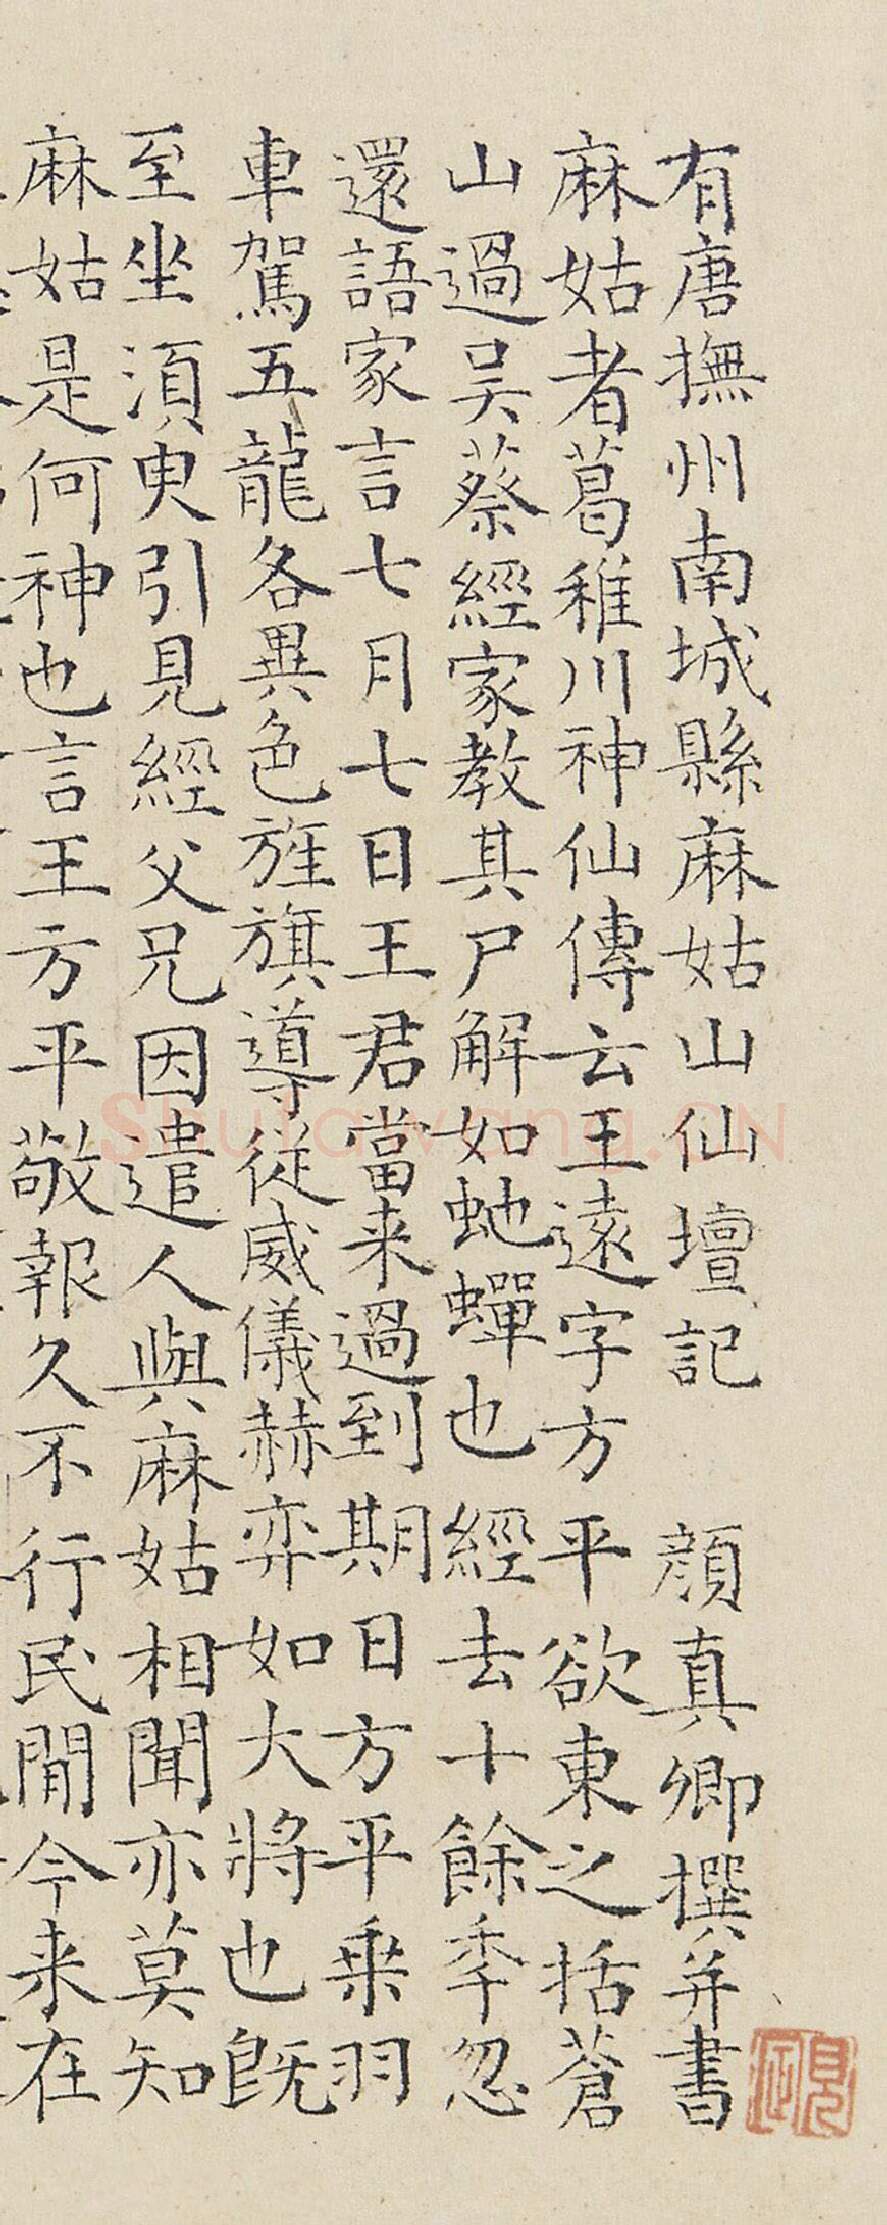 有唐撫州南城縣麻姑山仙壇記 顏真卿撰并書
麻姑者葛稚川神仙傳云王遠字方平欲東之括蒼
山過吴蔡經家教其尸解如虵蟬也經去十餘季忽
還語家言七月七日王君當来過到期日方平乗羽
車駕五龍各異色旌旗導従威儀赫弈如大將也既
至坐湏臾引見經父兄因遣人與麻姑相聞亦莫知
麻姑是何神也言王方平敬報久不行民間今来在
shufawang.CN